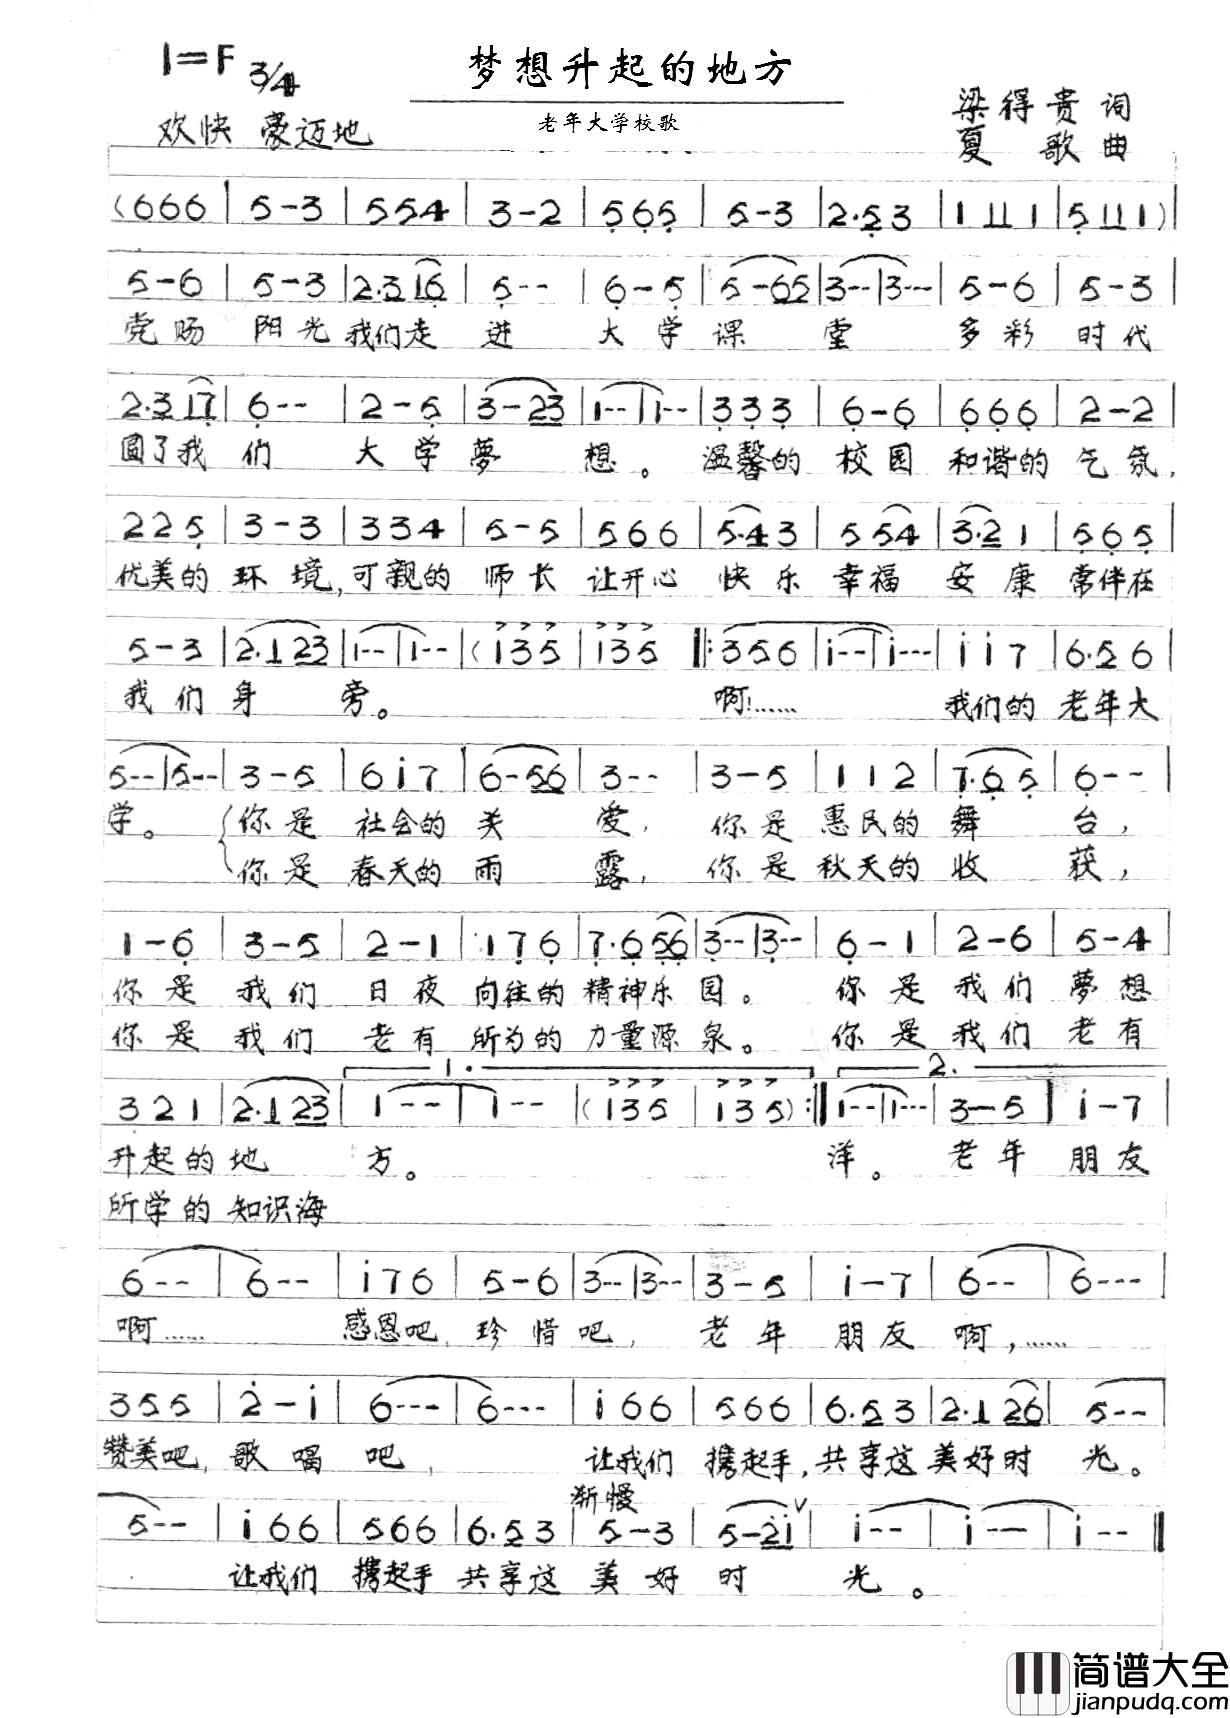 1=F 3/4
梦想升起的地方
老年大学校歌
欢快 豪迈地
梁得贵 词
夏歌 曲
(666 | 5-3 | 554 | 3-2 | 565 | 5-3 | 2·53 | 1 11 1 | 5 11 1)
5-6 | 5-3 | 2·316 | 5-- | 6-5 | 5-65 | 3-- | 3--- | 5-6 | 5-3
党赐 阳光 我们走 进 大学 课 堂 多彩 时代
2·3 17 | 6-- | 2-5 | 3-23 | 1-- | 1-- | 333 | 6-6 | 666 | 2-2
圆了我 们 大学 夢 想。 温馨的 校园 和谐的 气氛,
225 | 3-3 | 334 | 5-5 | 566 | 5·43 | 554 | 3·21 | 565
优美的 环境,可亲的 师长 让开心 快乐 幸福 安康 常伴在
5-3 | 2·123 | 1-- | 1-- | (i35 | i35 ‖: 356 | i-- | i--- | i i 7 | 6·56
我们 身 旁。 啊!…… 我们的 老年大
5-- | 5-- | 3-5 | 6i7 | 6-56 | 3-- | 3-5 | 112 | 7·65 | 6--
学。 你是 社会的 关 爱, 你是 惠民的 舞 台,
你是 春天的 雨 露, 你是 秋天的 收 获,
1-6 | 3-5 | 2-1 | 176 | 7·656 | 3-- | 3-- | 6-1 | 2-6 | 5-4
你是 我们 日夜 向往的 精神乐 园。 你是 我们 夢想
你是 我们 老有 所为的 力量源 泉。 你是 我们 老有
1. 2.
321 | 2·123 | 1-- | 1-- | (i35 | i35) :‖ 1-- | 1--- | 3-5 | i-7
升起的 地 方。 洋。 老年 朋友
所学的 知识海
6-- | 6-- | i76 | 5-6 | 3-- | 3-- | 3-5 | i-7 | 6-- | 6---
啊…… 感恩吧, 珍惜 吧, 老年 朋友 啊,……
355 | 2-i | 6--- | 6--- | i66 | 566 | 6·53 | 2·126 | 5--
赞美吧, 歌唱 吧, 让我们 携起手,共享这 美好时 光。
渐慢
5-- | i66 | 566 | 6·53 | 5-3 | 5-2i ∨ | i-- | i-- | i-- ‖
让我们 携起手 共享这 美好 时 光。
简谱大全
jianpudq.com